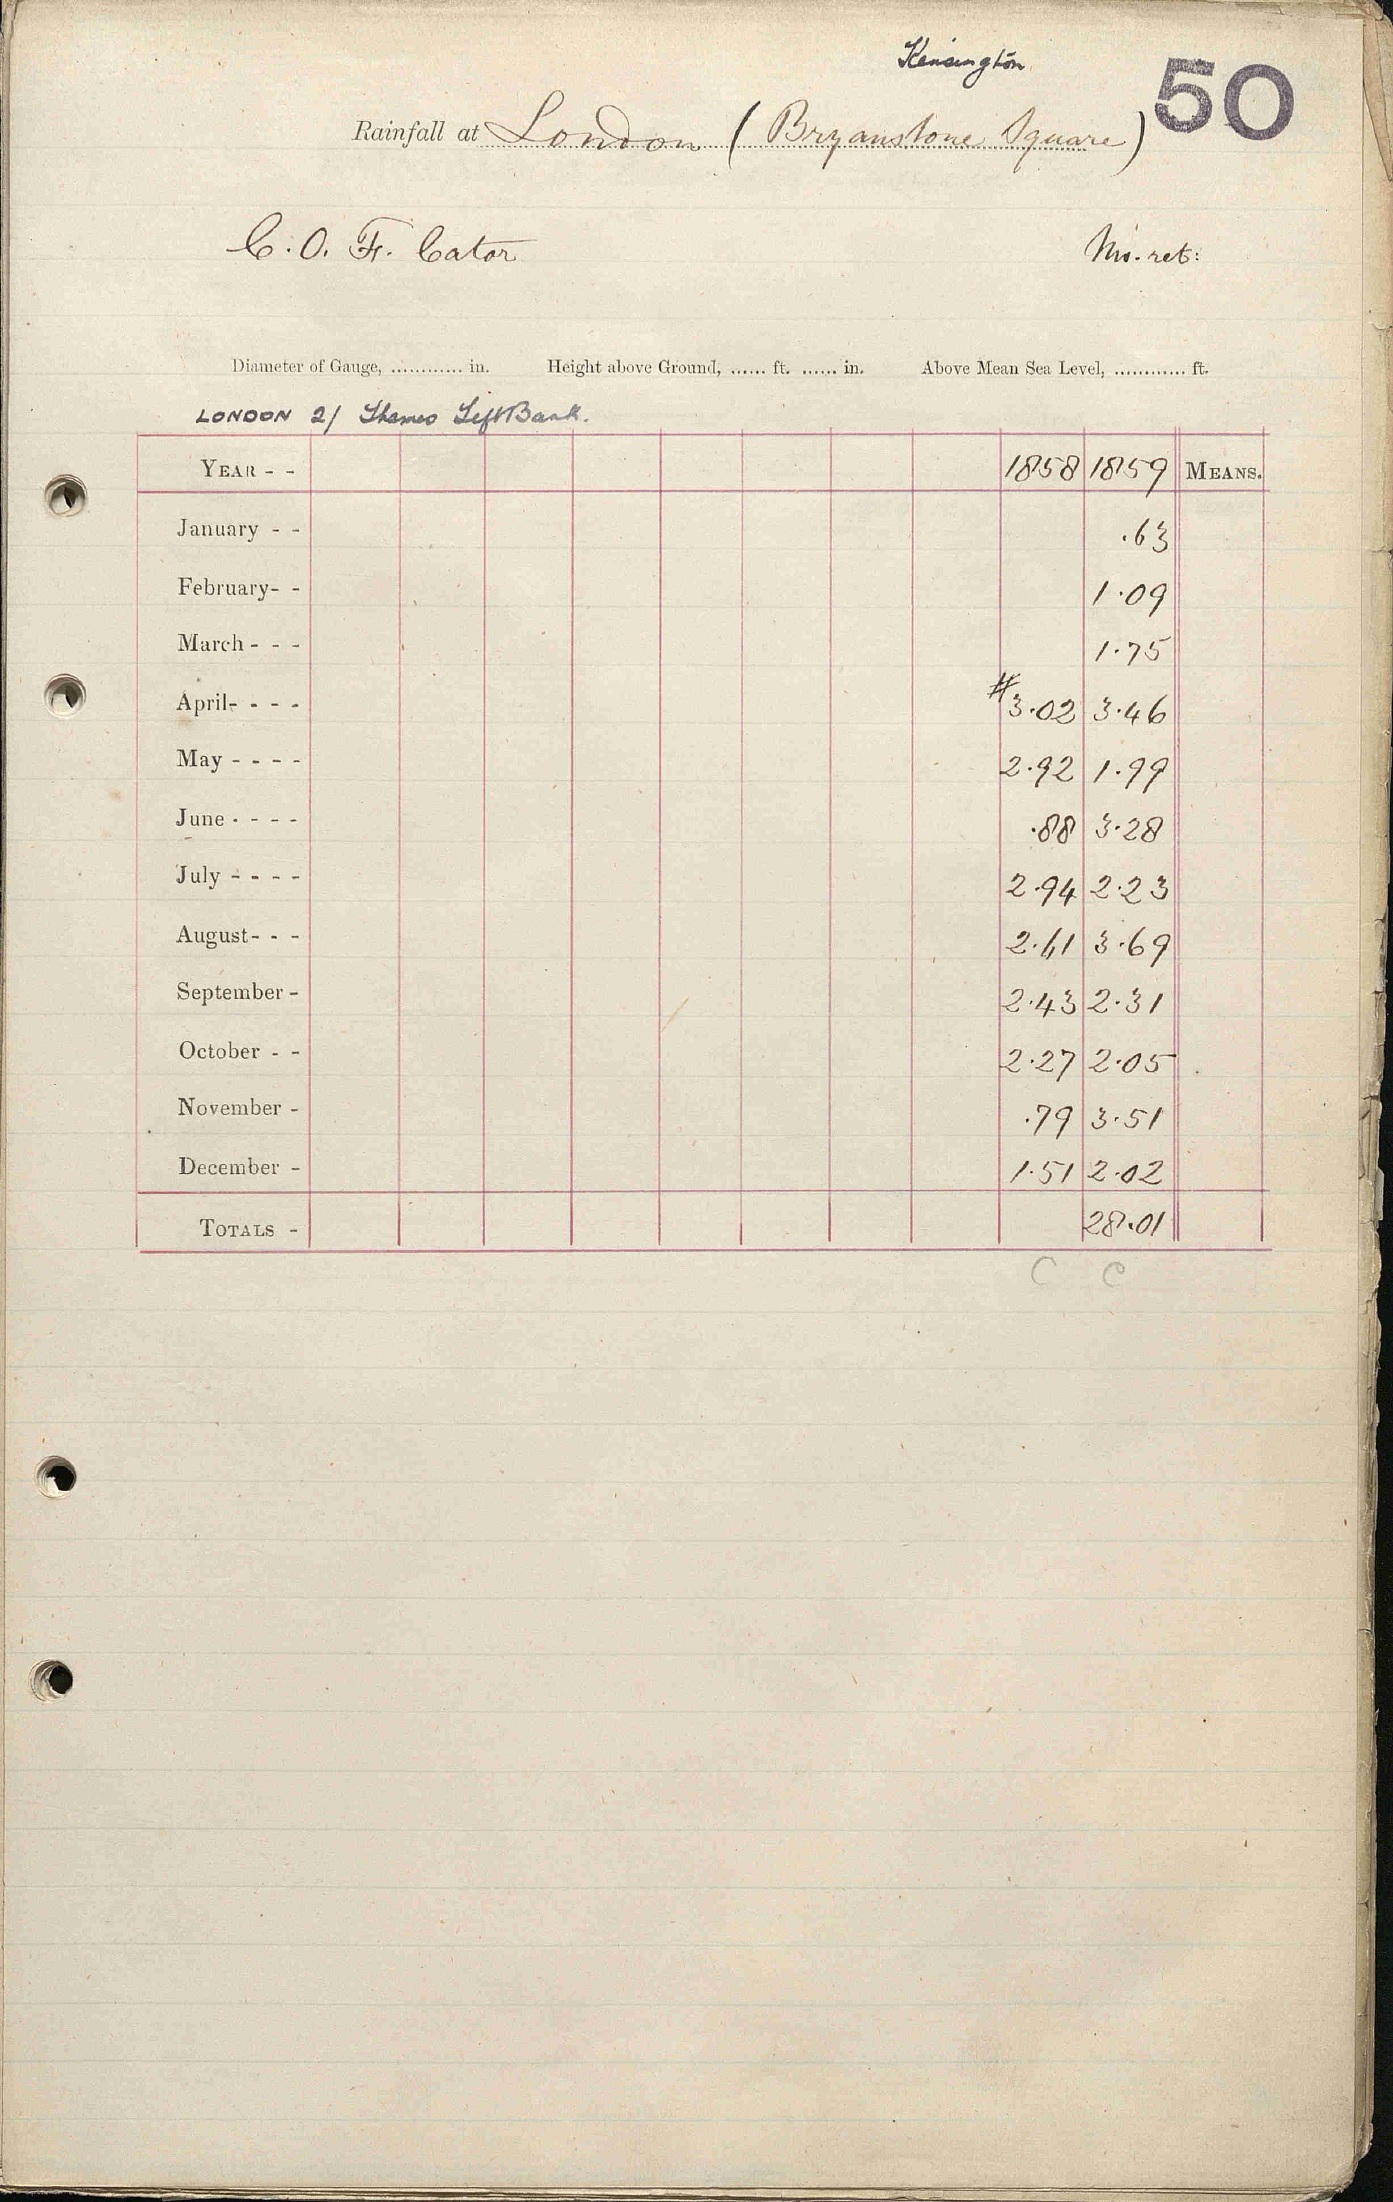 Kensington
50
Rainfall at London (Bryanstone Square)
C. O. F. Cator
Mo. ret:
Diameter of Gauge, ............ in. Height above Ground, ...... ft. ...... in. Above Mean Sea Level, ............ ft.
LONDON 2/ Thames Left Bank.
YEAR - - 1858 1859 MEANS.
January - - .63
February- - 1.09
March - - - 1.75
April- - - - #3.02 3.46
May - - - - 2.92 1.99
June - - - - .88 3.28
July - - - - 2.94 2.23
August- - - 2.61 3.69
September - 2.43 2.31
October - - 2.27 2.05
November - .79 3.51
December - 1.51 2.02
TOTALS - 28.01
C C